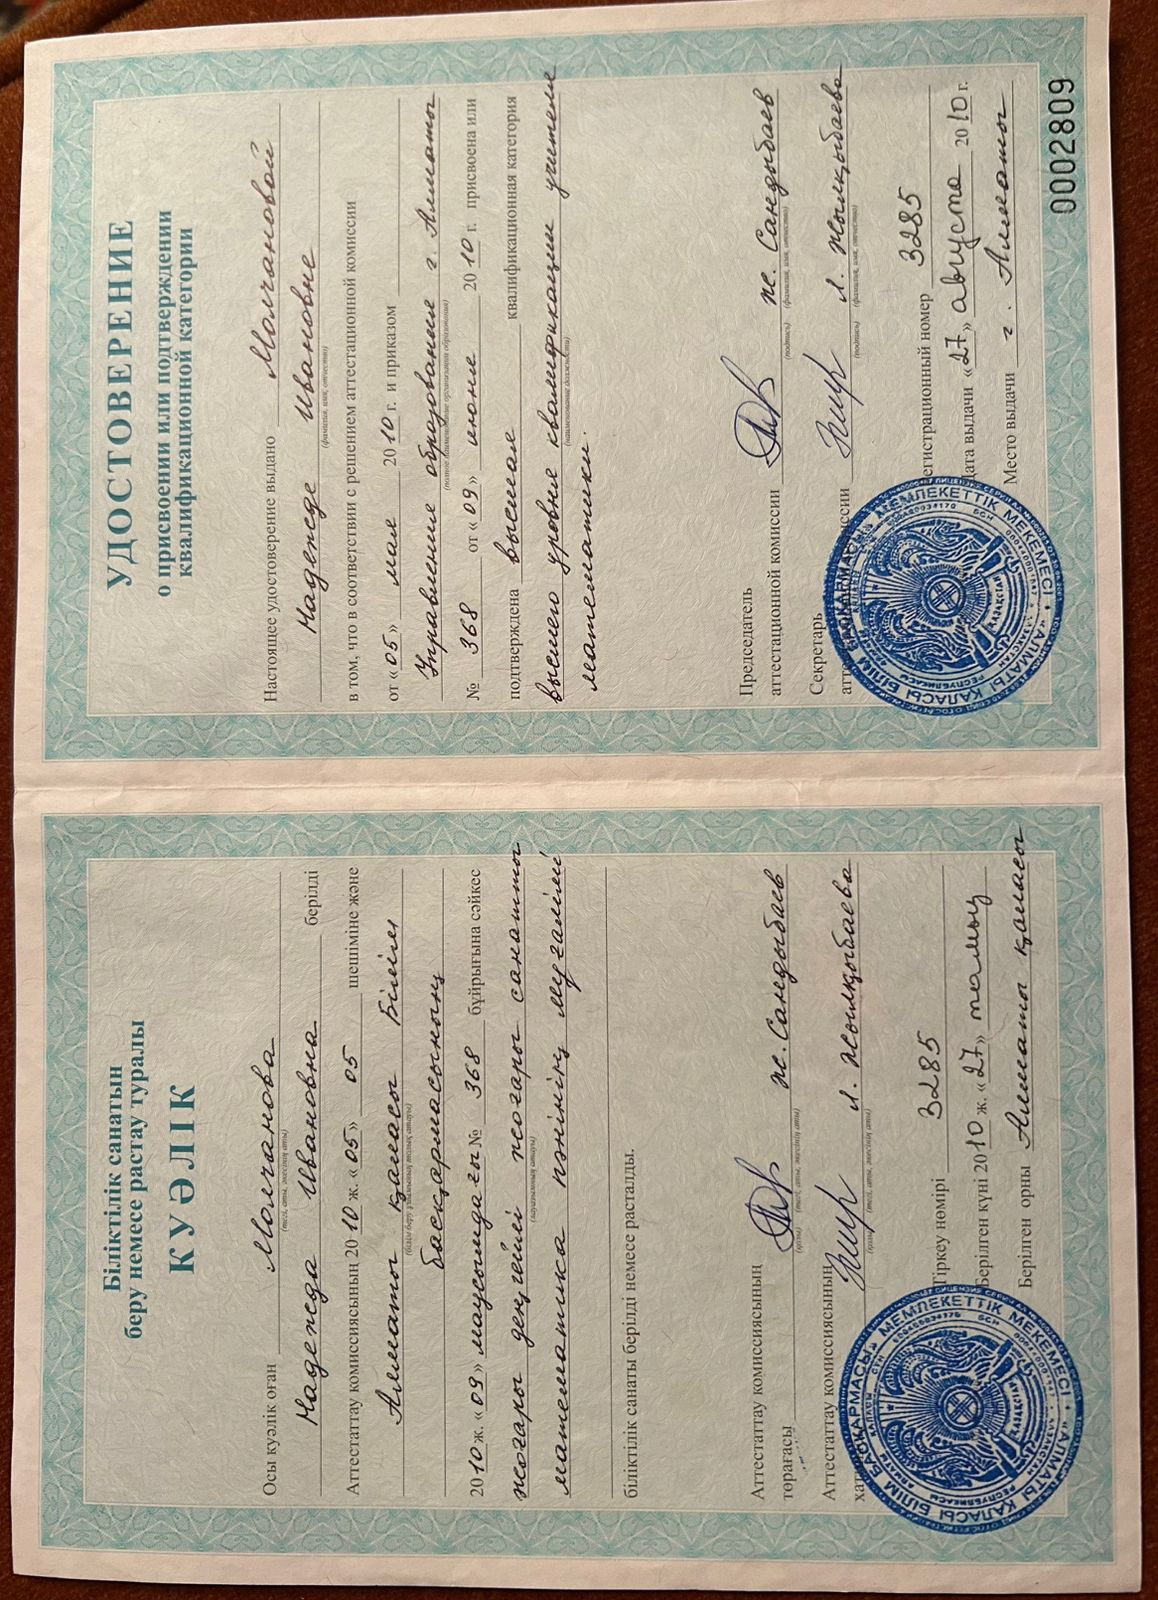 Біліктілік санатын
беру немесе растау туралы
КУӘЛІК
Осы куәлік оған Молчанова
(тегі, аты, әкесінің аты)
Надежда Ивановна берілді
Аттестаттау комиссиясының 2010 ж. «05» 05 шешіміне және
Алматы қаласы Білім
(білім беру ұйымының толық атауы)
басқармасының
2010 ж. «09» маусымдағы № 368 бұйрығына сәйкес
жоғары деңгейлі жоғары санатты
(лауазымының атауы)
математика пәнінің мұғалімі
біліктілік санаты берілді немесе расталды.
Аттестаттау комиссиясының
төрағасы Ж. Сандыбаев
(қолы) (тегі, аты, әкесінің аты)
Аттестаттау комиссиясының
Л. Жылқыбаева
(тегі, аты, әкесінің аты)
Тіркеу нөмірі 3285
Берілген күні 2010 ж. «27» тамыз
Берілген орны Алматы қаласы
АЛМАТЫ ҚАЛАСЫ БІЛІМ БАСҚАРМАСЫ МЕМЛЕКЕТТІК МЕКЕМЕСІ
ҚАЗАҚСТАН
УДОСТОВЕРЕНИЕ
о присвоении или подтверждении
квалификационной категории
Настоящее удостоверение выдано Молчановой
Надежде Ивановне
(фамилия, имя, отчество)
в том, что в соответствии с решением аттестационной комиссии
от «05» мая 2010 г. и приказом
Управление образования г. Алматы
(полное наименование организации образования)
№ 368 от «09» июня 2010 г. присвоена или
подтверждена высшая квалификационная категория
высшего уровня квалификации учителя
(наименование должности)
математики.
Председатель
аттестационной комиссии Ж. Сандыбаев
(подпись) (фамилия, имя, отчество)
Секретарь
Л. Жылқыбаева
(подпись) (фамилия, имя, отчество)
егистрационный номер 3285
ата выдачи «27» августа 2010 г.
Место выдачи г. Алматы
АЛМАТЫ ҚАЛАСЫ БІЛІМ БАСҚАРМАСЫ МЕМЛЕКЕТТІК МЕКЕМЕСІ
ҚАЗАҚСТАН
0002809